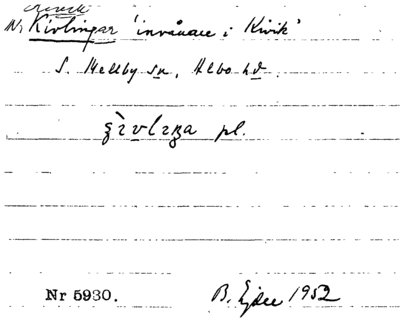 Kivik
N. Kivlingar 'invånare i Kivik'
S. Mellby sn, Albo hd
pl.
Nr 5930.
B. Ejder 1952